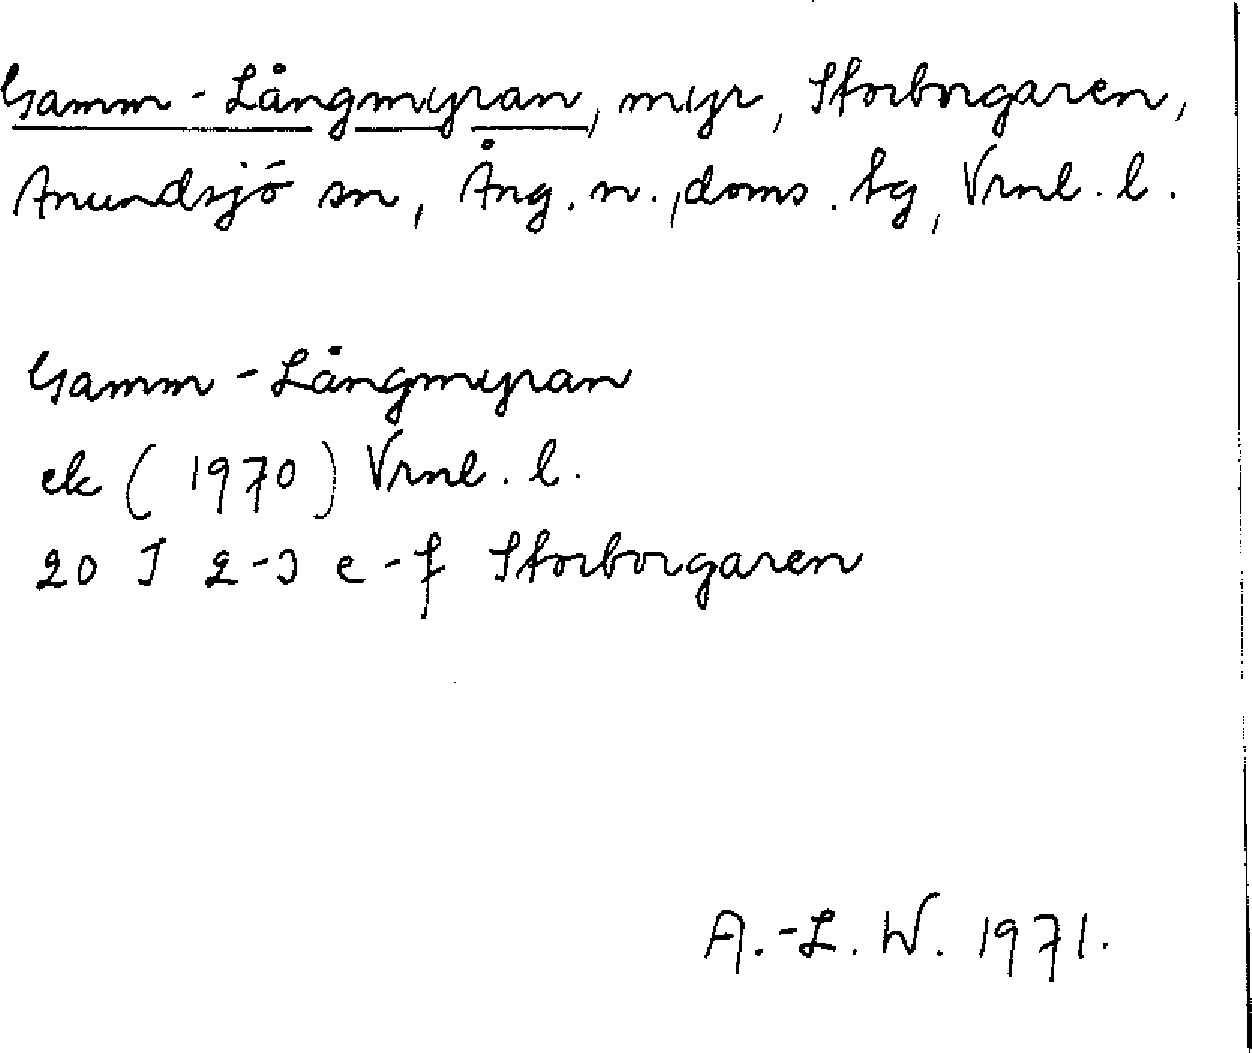 Gamm-Långmyran, myr, Storborgaren,
Anundsjö sn, Ång. n., doms. tg, Vrnl. l.
Gamm-Långmyran
ek (1970) Vrnl. l.
20 J 2-3 e-f Storborgaren
A.-L. W. 1971.